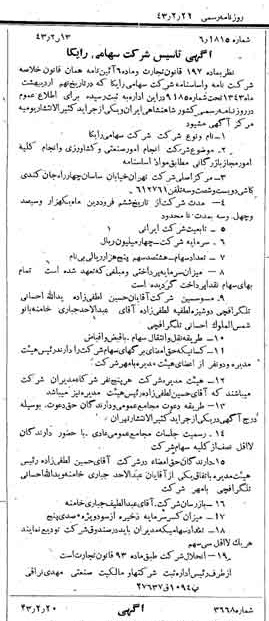 روزنامه رسمی ۴۳ر۲ر۲۲
شماره ۱۸۱۵ر۶ ۴۳ر۲ر۱۳
آگهی تاسیس شرکت سهامی رایکا
نظر بماده ۱۹۷ قانون تجارت و ماده ۶ آئین نامه همان قانون خلاصه
شرکت نامه و اساسنامه شرکت سهامی رایکا که در تاریخ نهم اردیبهشت
ماه ۱۳۴۳ تحت شماره ۹۱۸۵ در این اداره به ثبت رسیده برای اطلاع عموم
در روزنامه رسمی کشور شاهنشاهی ایران و یکی از جراید کثیرالانتشار یومیه
مرکز آگهی میشود
۱ - نام و نوع شرکت - شرکت سهامی رایکا
۲ - موضوع شرکت انجام امور صنعتی و کشاورزی و انجام کلیه
امور مجاز بازرگانی مطابق مواد اساسنامه
۳ - مرکز اصلی شرکت تهران خیابان ساسان چهارراه جان کندی
کاشی دویست و شصت و سه تلفن ۶۱۲۷۶۱
۴ - مدت شرکت از تاریخ ششم فروردین ماه یکهزار و سیصد
و چهل و سه بمدت نامحدود
۵ - تابعیت شرکت ایرانی
۶ - سرمایه شرکت - چهار میلیون ریال
۷ - تعداد سهام - هشتصد سهم پنج هزار ریالی بی نام
۸ - میزان سرمایه پرداختی و مبلغی که تعهد شده است تمام
بهای سهام نقدا پرداخت گردیده است
۹ - موسسین شرکت آقایان حسین لطفی زاده یداله احسانی
تلگرافچی دوشیزه لطفیه لطفی زاده آقای عبدالاحد جباری خامنه بانو
شمس الملوک احسانی تلگرافچی
۱۰ - طریقه نقل و انتقال سهام - باقبض و اقباض
۱۱ - کسانیکه حق امضای برگهای سهام شرکت را دارند رئیس هیئت
مدیره و دو نفر از اعضای هیئت مدیره با مهر شرکت
۱۲ - هیئت مدیره شرکت هر پنج نفر شرکاء مدیران شرکت
میباشند که آقای حسین لطفی زاده رئیس هیئت مدیره نیز میباشد
۱۳ - طریقه دعوت مجامع عمومی و دارندگان حق دعوت - بوسیله
درج آگهی در یکی از جراید کثیرالانتشار تهران
۱۴ - رسمیت جلسات مجامع عمومی عادی - با حضور دارندگان
لااقل نصف از کلیه سهام شرکت
۱۵ - دارندگان حق امضاء در شرکت آقای حسین لطفی زاده رئیس
هیئت مدیره باتفاق یکی از آقایان عبدالاحد جباری خامنه و یداله احسانی
تلگرافچی با مهر شرکت
۱۶ - بازرسان شرکت - آقای عبداللطیف جباری خامنه
۱۷ - میزان کسر سرمایه ذخیره از سود ویژه - صدی پنج
۱۸ - تعداد سهامیکه مدیران باید در صندوق شرکت تودیع نمایند
هر یک لااقل سی سهم
۱۹ - انحلال شرکت طبق ماده ۹۳ قانون تجارت است
از طرف رئیس اداره ثبت شرکتها و مالکیت صنعتی مهدی نراقی
۲۷۶۳۷
شماره ۳۶۶۸ آگهی ۴۳ر۲ر۲۰